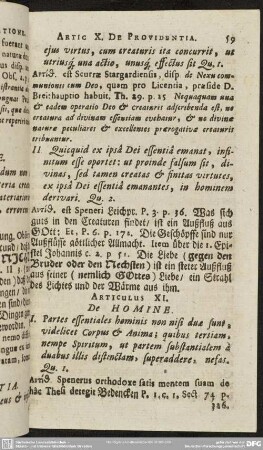 ARTIC X. DE PROVIDENTIA. 59
ejus virtus, cum creaturis ita concurrit, ut
utriusq; una actio, unusq; effectus sit Qu. 1.
ArtiS. est Scuræ Stargardiensis, disp de Nexu com-
munionis cum Deo, quam pro Licentia, præside D.
Breithauptio habuit. Th. 29. p. 15 Nequaquam una
& eadem operatio Deo & creaturis adscribenda est, ne
creatura ad divinam essentiam evehatur, & ne divinæ
naturæ peculiares & excellentes prærogativæ creaturis
tribuantur.
II Quicquid ex ipsâ Dei essentiâ emanat, infi-
nitum esse oportet: ut proinde falsum sit, di-
vinas, sed tamen creatas & finitas virtutes,
ex ipsâ Dei essentiâ emanantes, in hominem
derivari. Qu. 2.
ArtiS. est Speneri Leichpr. P. 3. p. 36. Was sich
guts in den Creaturen findet/ ist ein Außfluß aus
GOtt: Et, P. 6. p. 171. Die Geschöpffe sind nur
Außflüsse göttlicher Allmacht. Item über die 1. Epi-
stel Johannis c. 2. p. 51. Die Liebe (gegen den
Bruder oder den Nechsten) ist ein steter Außfluß
aus seiner (nemlich GOttes) Liebe/ ein Strahl
des Lichtes und der Wärme aus ihm.
ARTICULUS XI.
DE HOMINE.
I. Partes essentiales hominis non nisi duæ sunt,
videlicet Corpus & Anima; quibus tertiam,
nempe Spiritum, ut partem substantialem à
duabus illis distinctam, superaddere, nefas.
Qu. 1.
ArtiS. Spenerus orthodoxe satis mentem suam de
hac Thesi detegit Bedencken P. 1. c. 1, Sect. 74 p.
316.